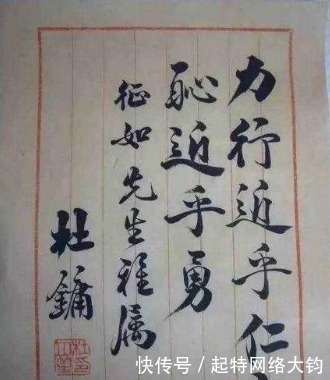 力行近乎仁
恥近乎勇
征如先生雅属
杜鏞
快传号／起特网络大钧